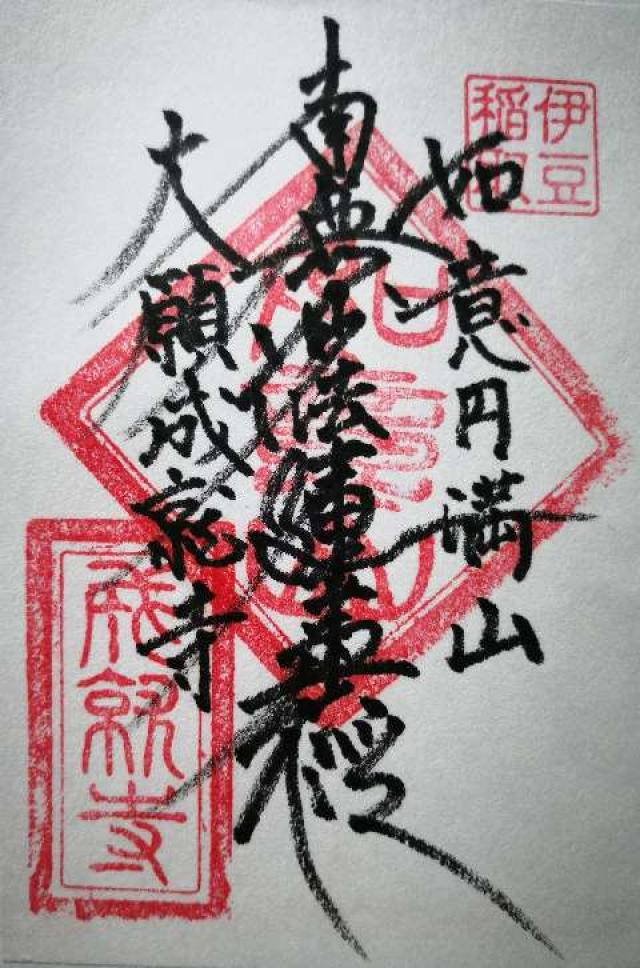 伊豆
稲取
如意円満山
南無妙法蓮華経
大願成就寺
如意山
成就寺